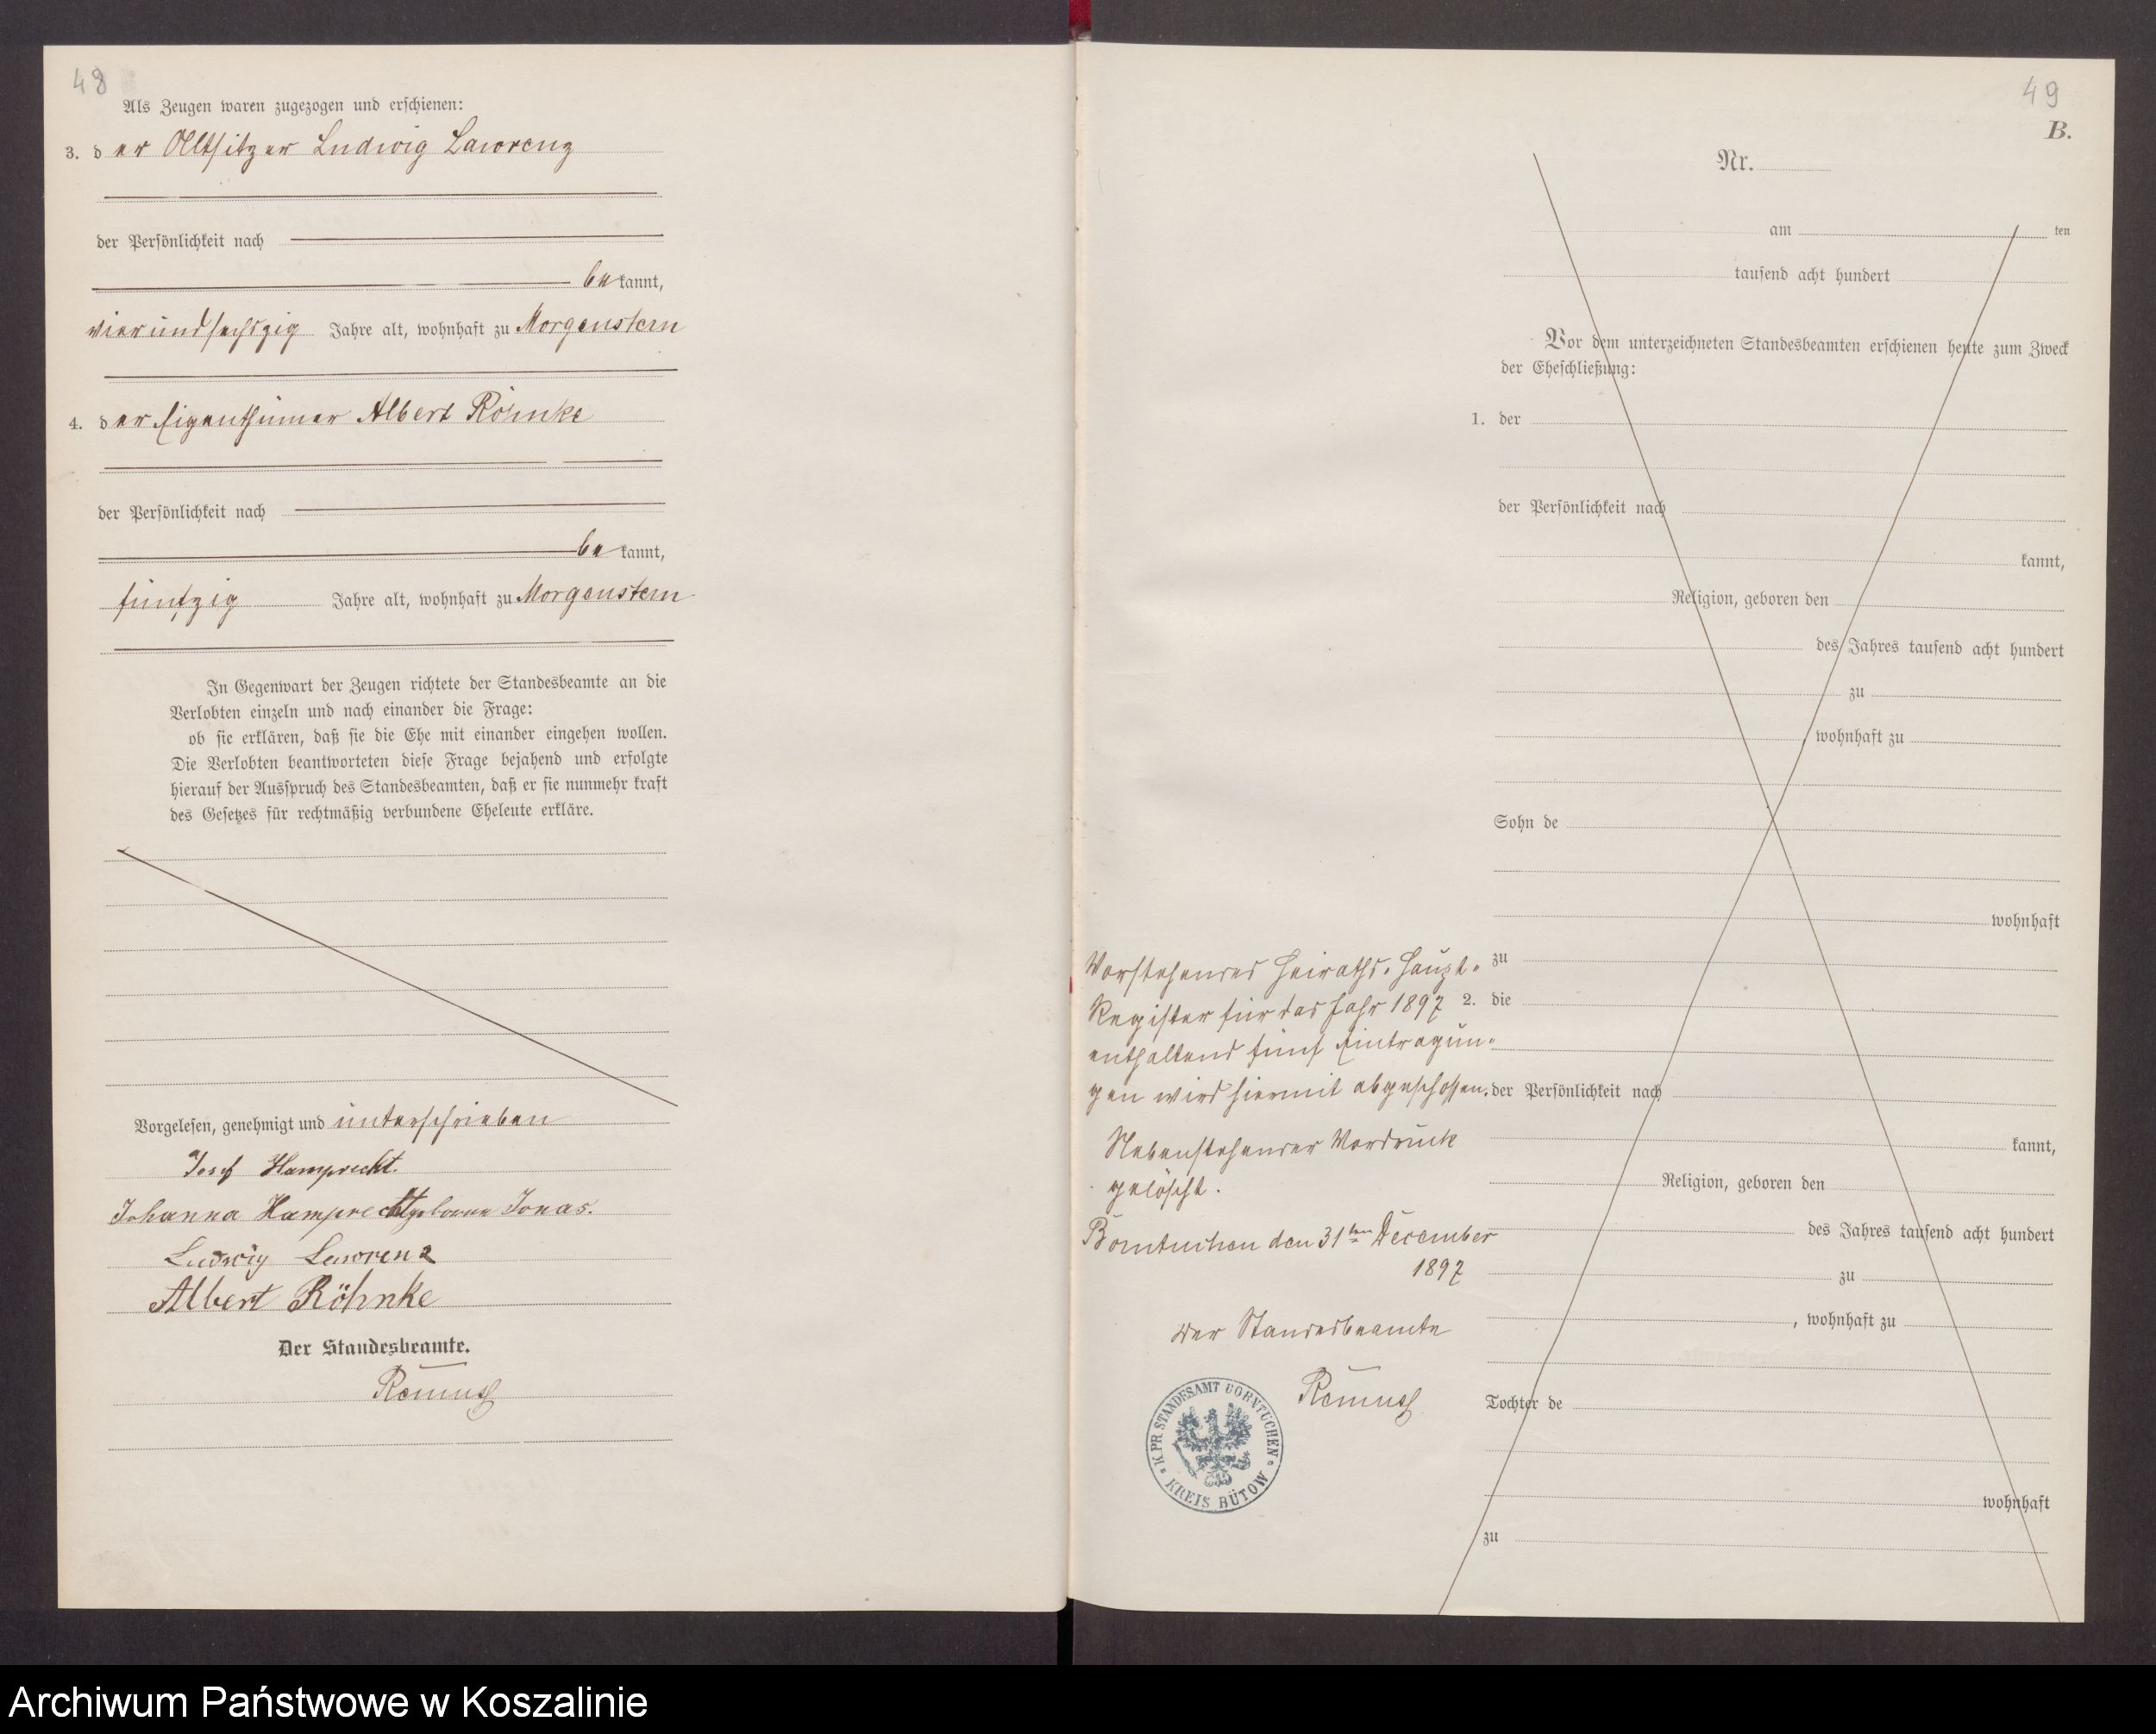 48
Als Zeugen waren zugezogen und erschienen:
3. der Altsitzer Ludwig Lawrenz
der Persönlichkeit nach
bekannt,
vierundsechszig Jahre alt, wohnhaft zu Morgenstern
4. der Eigenthümer Albert Röhnke
der Persönlichkeit nach
bekannt,
fünfzig Jahre alt, wohnhaft zu Morgenstern
In Gegenwart der Zeugen richtete der Standesbeamte an die
Verlobten einzeln und nach einander die Frage:
ob sie erklären, daß sie die Ehe mit einander eingehen wollen.
Die Verlobten beantworteten diese Frage bejahend und erfolgte
hierauf der Ausspruch des Standesbeamten, daß er sie nunmehr kraft
des Gesetzes für rechtmäßig verbundene Eheleute erkläre.
Vorgelesen, genehmigt und unterschrieben
Josef Hamprecht.
Johanna Hamprecht geborene Jonas.
Ludwig Lawrenz
Albert Röhnke
Der Standesbeamte.
49
B.
Nr.
am ten
tausend acht hundert
Vor dem unterzeichneten Standesbeamten erschienen heute zum Zweck
der Eheschließung:
1. der
der Persönlichkeit nach
kannt,
Religion, geboren den
des Jahres tausend acht hundert
zu
, wohnhaft zu
Sohn de
wohnhaft
zu
2. die
der Persönlichkeit nach
kannt,
Religion, geboren den
des Jahres tausend acht hundert
zu
, wohnhaft zu
Tochter de
wohnhaft
zu
Vorstehendes Heiraths-Haupt-
Register für das Jahr 1897
enthaltend fünf Eintragun-
gen wird hiermit abgeschossen.
Nebenstehender Vordruck
gelöscht.
Borntuchen den 31ten December
1897
Der Standesbeamte
K. PR. STANDESAMT BORNTUCHEN
KREIS BÜTOW
Archiwum Państwowe w Koszalinie